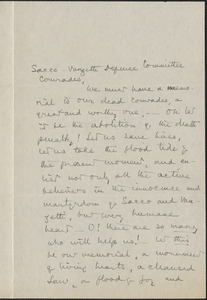 Sacco-Vanzetti Defense Committee
Comrades,
We must have a memo-
rial to our dead comrades, a
great and worthy one, — Oh let
it be the abolition of the death
penalty! Let us save lives,
let us take the flood tide of
the present moment, and en-
list not only all the active
believers in the innocence and
martyrdom of Sacco and Van-
zetti, but every humane
heart — O! there are so many
who will help us! Let this
be our memorial, a monument
of living hearts, a cleansed
Law, a flood of joy and